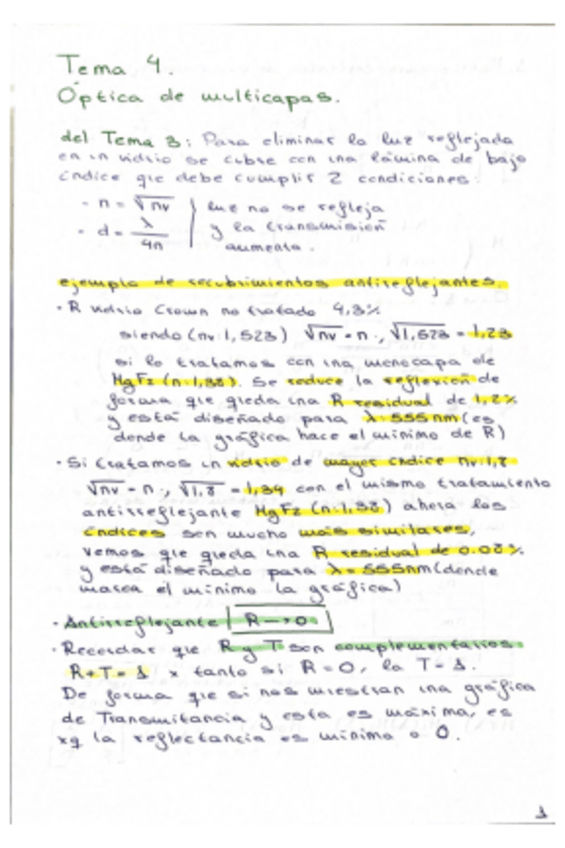 Tema 4.
Óptica de multicapas.
del Tema 3: Para eliminar la luz reflejada
en un vidrio se cubre con una lámina de bajo
índice que debe cumplir 2 condiciones:
- n = √nv | luz no se refleja
- d = λ/4n | y la transmisión
aumenta.
ejemplo de recubrimientos antireflejantes.
· R vidrio Crown no tratado 4,3%
siendo (nv: 1,523) √nv = n ; √1,523 = 1,23
si lo tratamos con una monocapa de
MgF2 (n: 1,38). Se reduce la reflexión de
forma que queda una R residual de 1,2%
y está diseñado para λ = 555 nm (es
donde la gráfica hace el mínimo de R)
· Si tratamos un vidrio de mayor índice nv: 1,8
√nv = n ; √1,8 = 1,34 con el mismo tratamiento
antirreflejante MgF2 (n: 1,38) ahora los
índices son mucho más similares,
vemos que queda una R residual de 0.08%
y está diseñado para λ = 555nm (donde
marca el mínimo la gráfica)
· Antirreflejante R → 0
· Recordar que R y T son complementarios
R + T = 1 x tanto si R = 0, la T = 1.
De forma que si nos muestran una gráfica
de Transmitancia y esta es máxima, es
xq la reflectancia es mínima o 0.
1